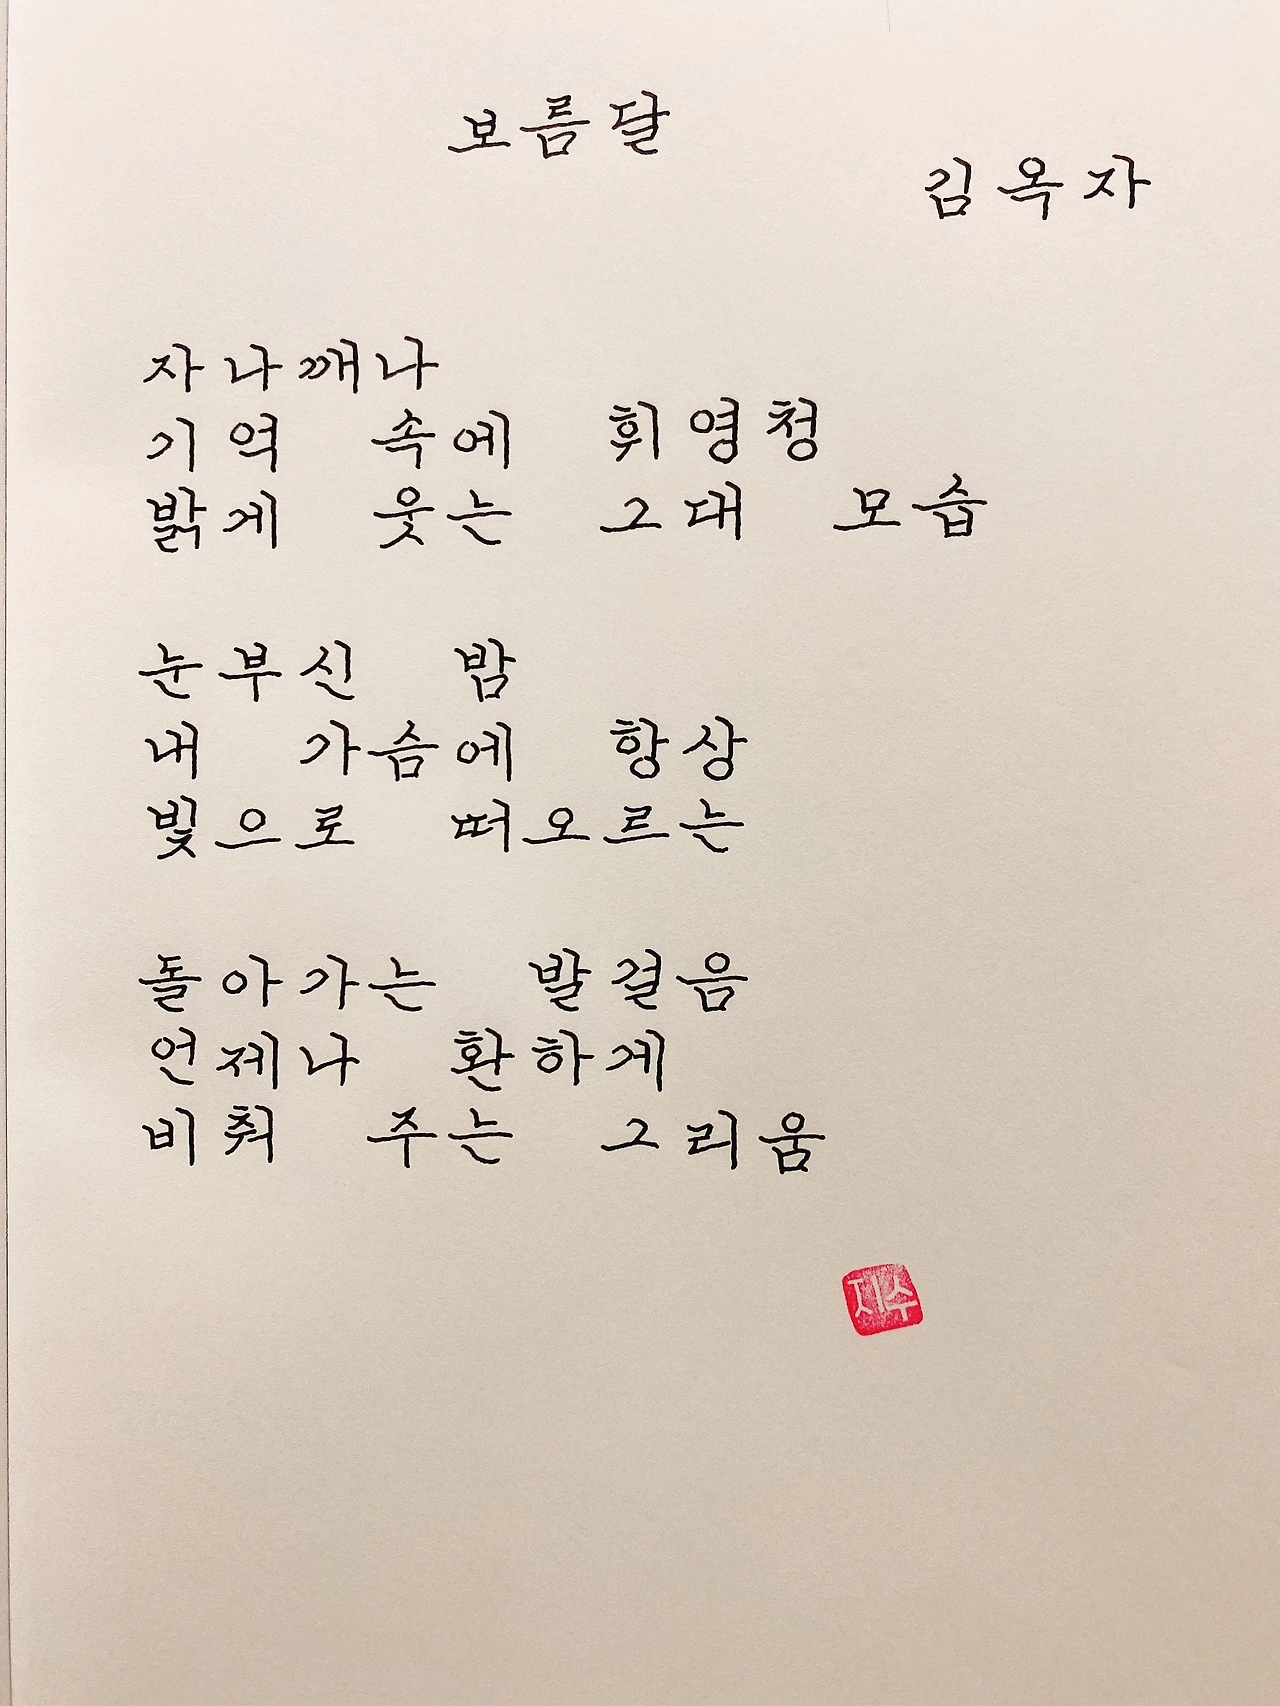 보름달
김옥자
자나깨나
기억 속에 휘영청
밝게 웃는 그대 모습
눈부신 밤
내 가슴에 항상
빛으로 떠오르는
돌아가는 발걸음
언제나 환하게
비춰 주는 그리움
지수